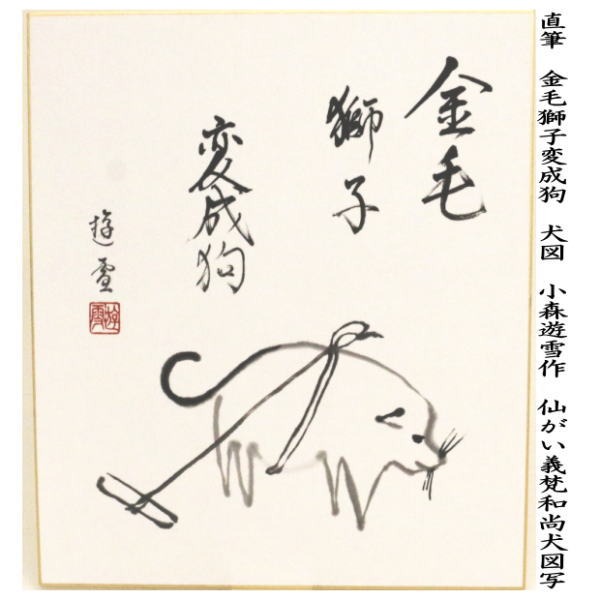 直筆　金毛獅子変成狗　犬図　小森遊雪作　仙がい義梵和尚犬図写
金毛
獅子
変成狗
遊雪